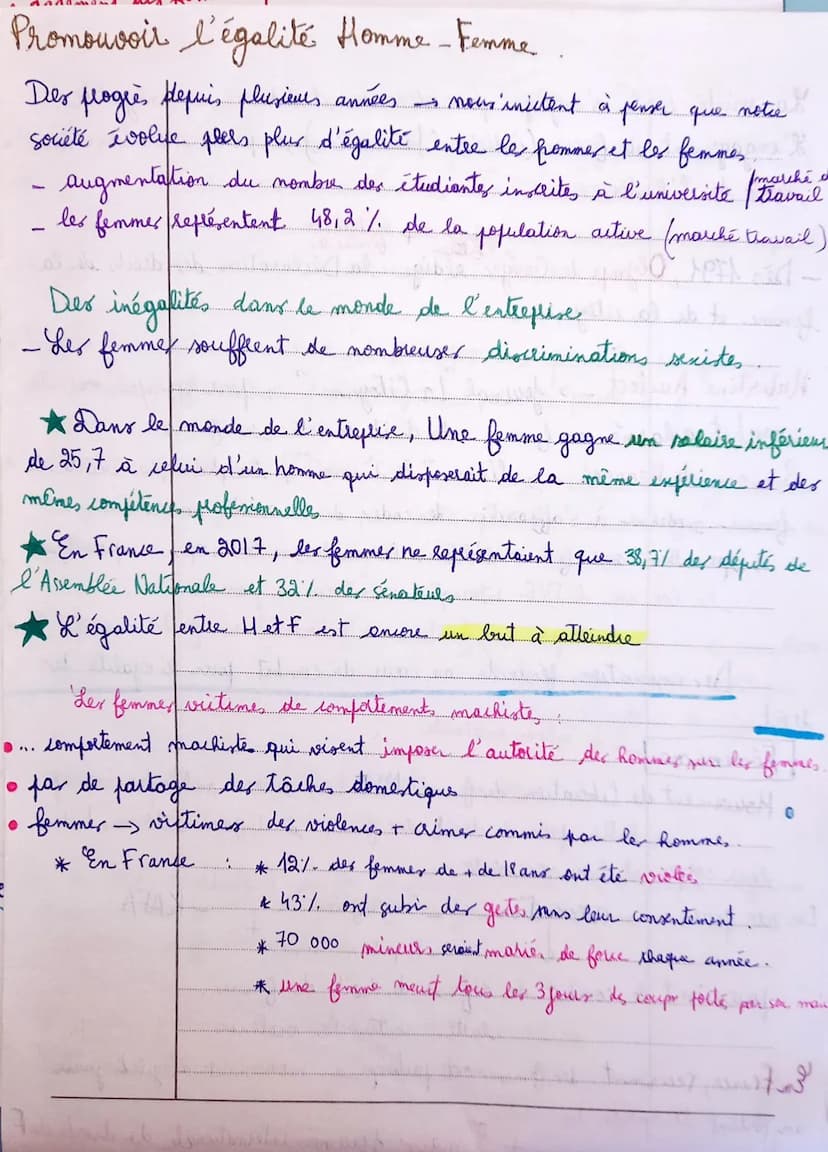 Promouvoir l'égalité Homme - Femme.
Des progrès depuis plusieurs années → nous incitent à penser que notre
société évolue vers plus d'égalité entre les hommes et les femmes
- augmentation du nombre des étudiantes inscrites à l'université /marché
travail
- les femmes représentent 48,2 % de la population active (marché travail)
Des inégalités dans le monde de l'entreprise
- Les femmes souffrent de nombreuses discriminations sexistes
★ Dans le monde de l'entreprise, Une femme gagne un salaire inférieur
de 25,7 à celui d'un homme qui disposerait de la même expérience et des
mêmes compétences professionnelles
★ En France, en 2017, les femmes ne représentaient que 38,7% des députés de
l'Assemblée Nationale et 32% des sénateurs
★ L'égalité entre H et F est encore un but à atteindre
Les femmes victimes de comportements machistes :
• ... comportement machiste qui visent imposer l'autorité des hommes sur les femmes
• pas de partage des tâches domestiques
• femmes → victimes des violences + commis par les hommes.
* En France : * 12% des femmes de + de 18 ans ont été violés
* 43% ont subir des gestes sans leur consentement.
* 70 000 mineurs seraient mariés de force chaque année.
* une femme meurt tous les 3 jours de coups porté par son